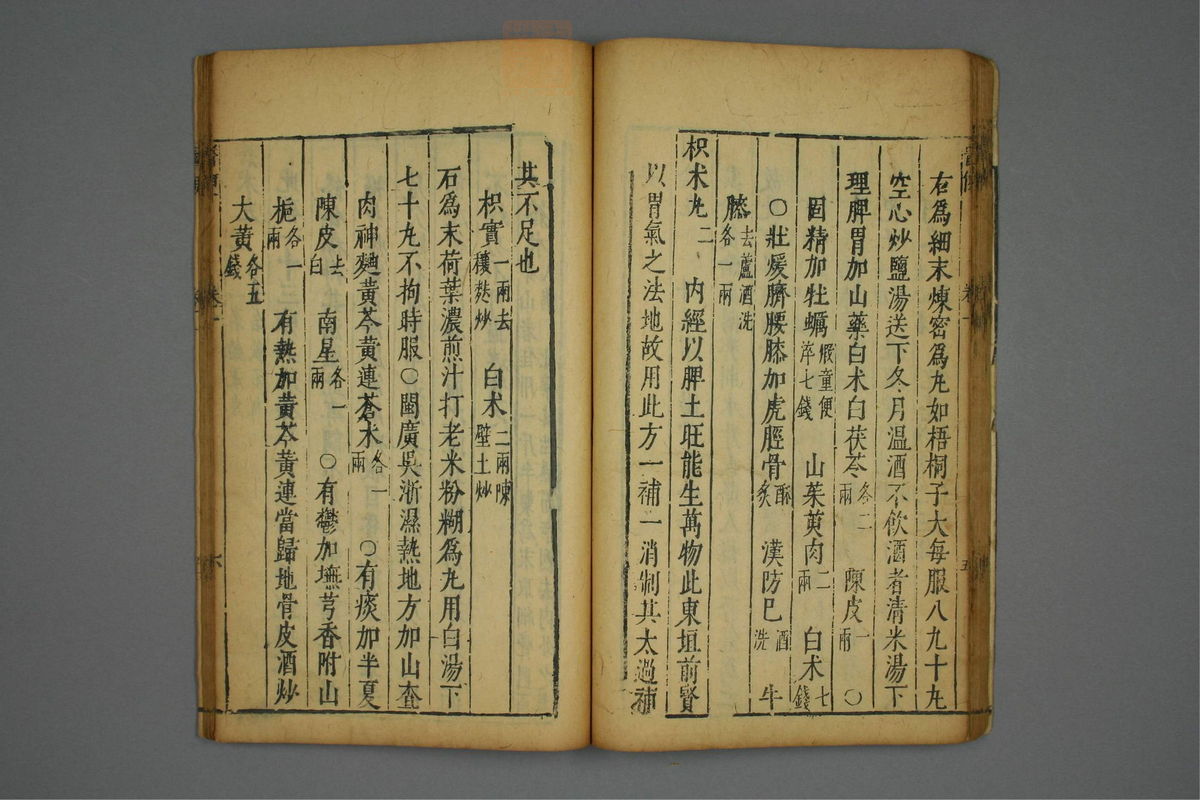 右爲細末煉密爲丸如梧桐子大每服八九十丸
空心炒鹽湯送下冬月溫酒不飲酒者清米湯下
理脾胃加山藥白朮白茯苓各二兩 陳皮一兩 〇
固精加牡蠣煆童便淬七錢 山茱萸肉二兩 白朮七錢
〇壯煖臍腰膝加虎脛骨酥炙 漢防巳酒洗 牛
膝去蘆酒洗各一兩
枳朮丸二 內經以脾土旺能生萬物此東垣前賢
以胃氣之法地故用此方一補一消制其太過補
其不足也
枳實一兩去穰麩炒 白朮二兩陳壁土炒
石爲末荷葉濃煎汁打老米粉糊爲丸用白湯下
七十丸不拘時服〇閩廣吳浙濕熱地方加山查
肉神麯黃芩黃連蒼朮各一兩 〇有痰加半夏
陳皮去白 南星各一兩 〇有鬱加撫芎香附山
梔各一兩 有熱加黃芩黃連當歸地骨皮酒炒
大黃各五錢